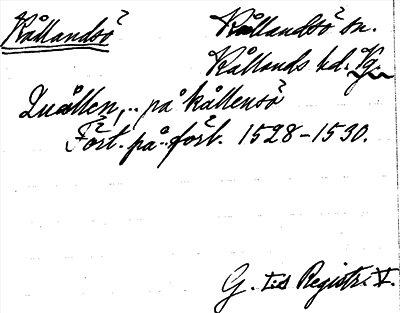 Kållandsö Kållandsö sn.
Kållands hd. Vg.
Quällen, .. på källensö
Fört. på .. fört. 1528-1530.
G. I:s Registr. V.